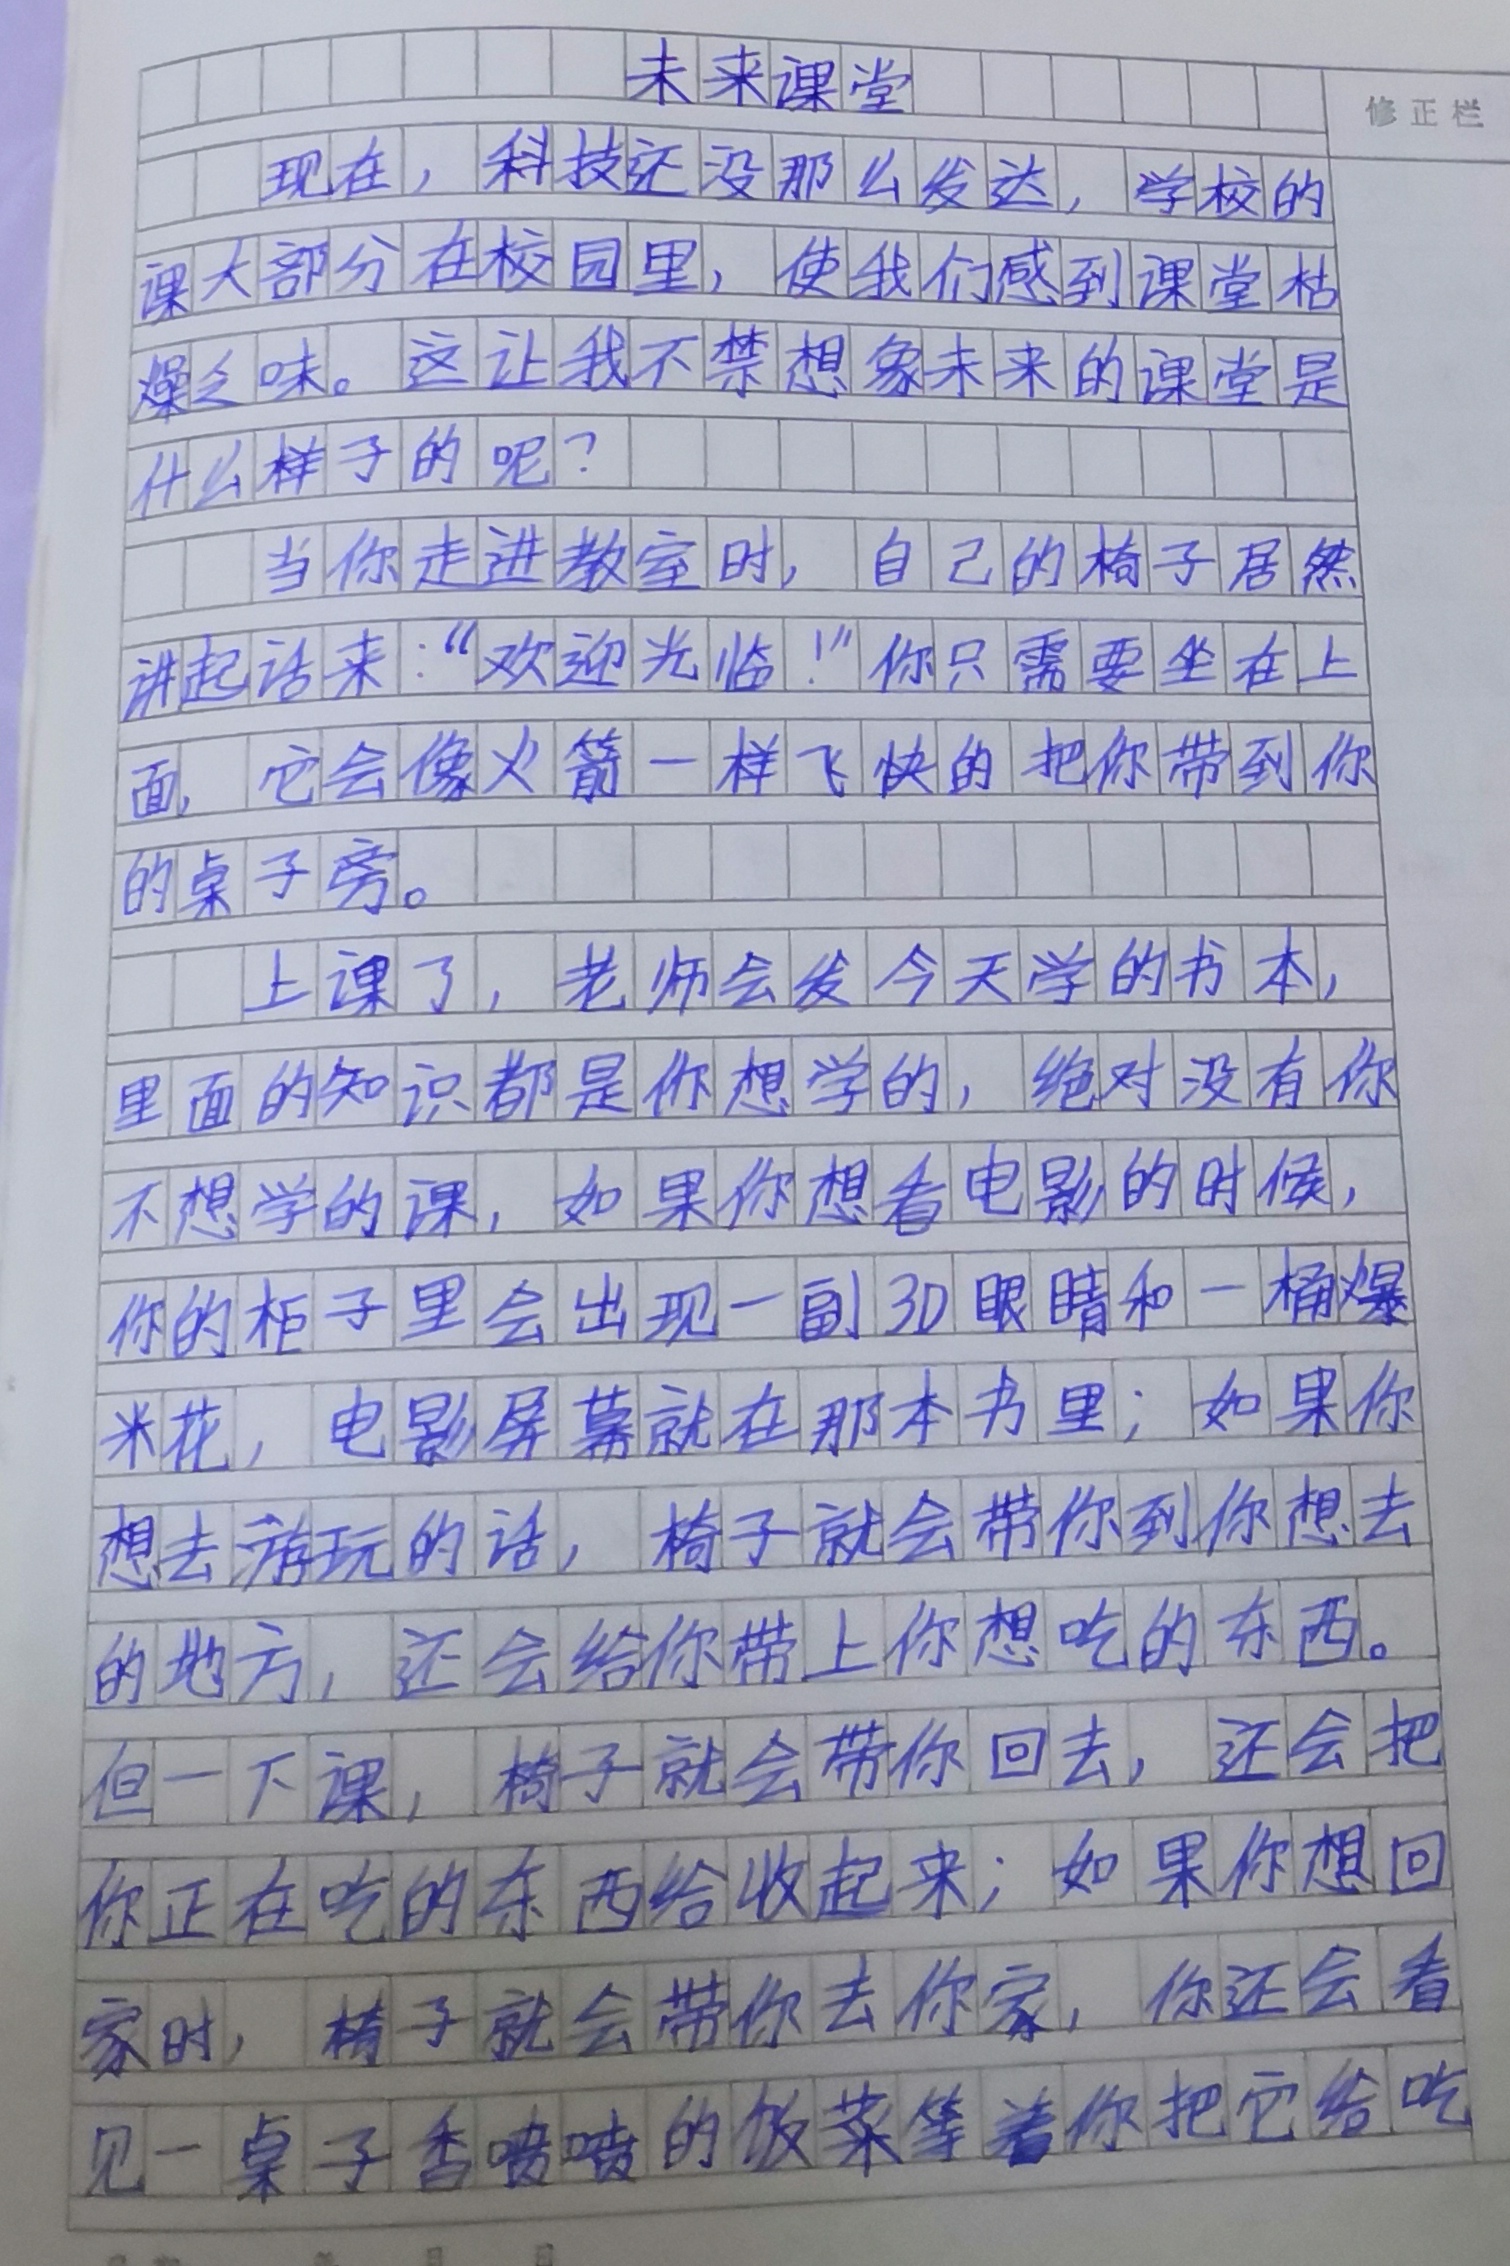 未来课堂
修正栏
现在，科技还没那么发达，学校的
课大部分在校园里，使我们感到课堂枯
燥乏味。这让我不禁想象未来的课堂是
什么样子的呢？
当你走进教室时，自己的椅子居然
讲起话来：“欢迎光临！”你只需要坐在上
面，它会像火箭一样飞快的把你带到你
的桌子旁。
上课了，老师会发今天学的书本，
里面的知识都是你想学的，绝对没有你
不想学的课，如果你想看电影的时候，
你的柜子里会出现一副3D眼睛和一桶爆
米花，电影屏幕就在那本书里；如果你
想去游玩的话，椅子就会带你到你想去
的地方，还会给你带上你想吃的东西。
但一下课，椅子就会带你回去，还会把
你正在吃的东西给收起来；如果你想回
家时，椅子就会带你去你家，你还会看
见一桌子香喷喷的饭菜等着你把它给吃